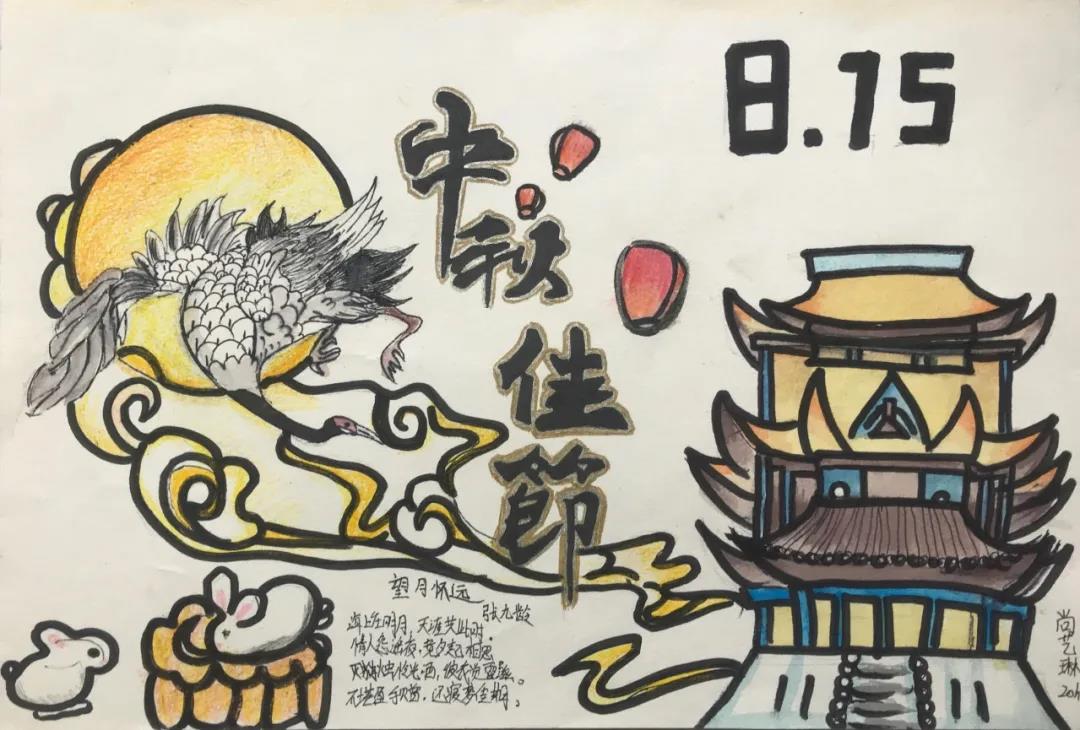 8.15
中秋佳節
望月怀远
张九龄
海上生明月,天涯共此时,
情人怨遥夜,竟夕起相思
灭烛怜光满,披衣觉露滋。
不堪盈手赠,还寝梦佳期。
尚艺琳